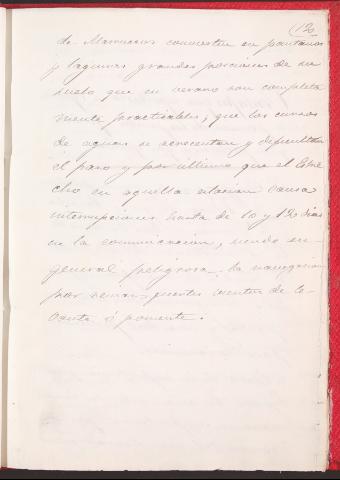 (120
de Marruecos convierten en pantanos
y lagunas grandes porciones de su
suelo que en verano son completa
mente practicables; que los cursos
de aguas se acrecentan y dificultan
el paso y por último que el Estre
cho en aquella estacion causa
interrupciones hasta de 10 y 12 dias
en la comunicacion, siendo en
general peligrosa la navegacion
por reinar fuertes vientos de le-
vante ó poniente.